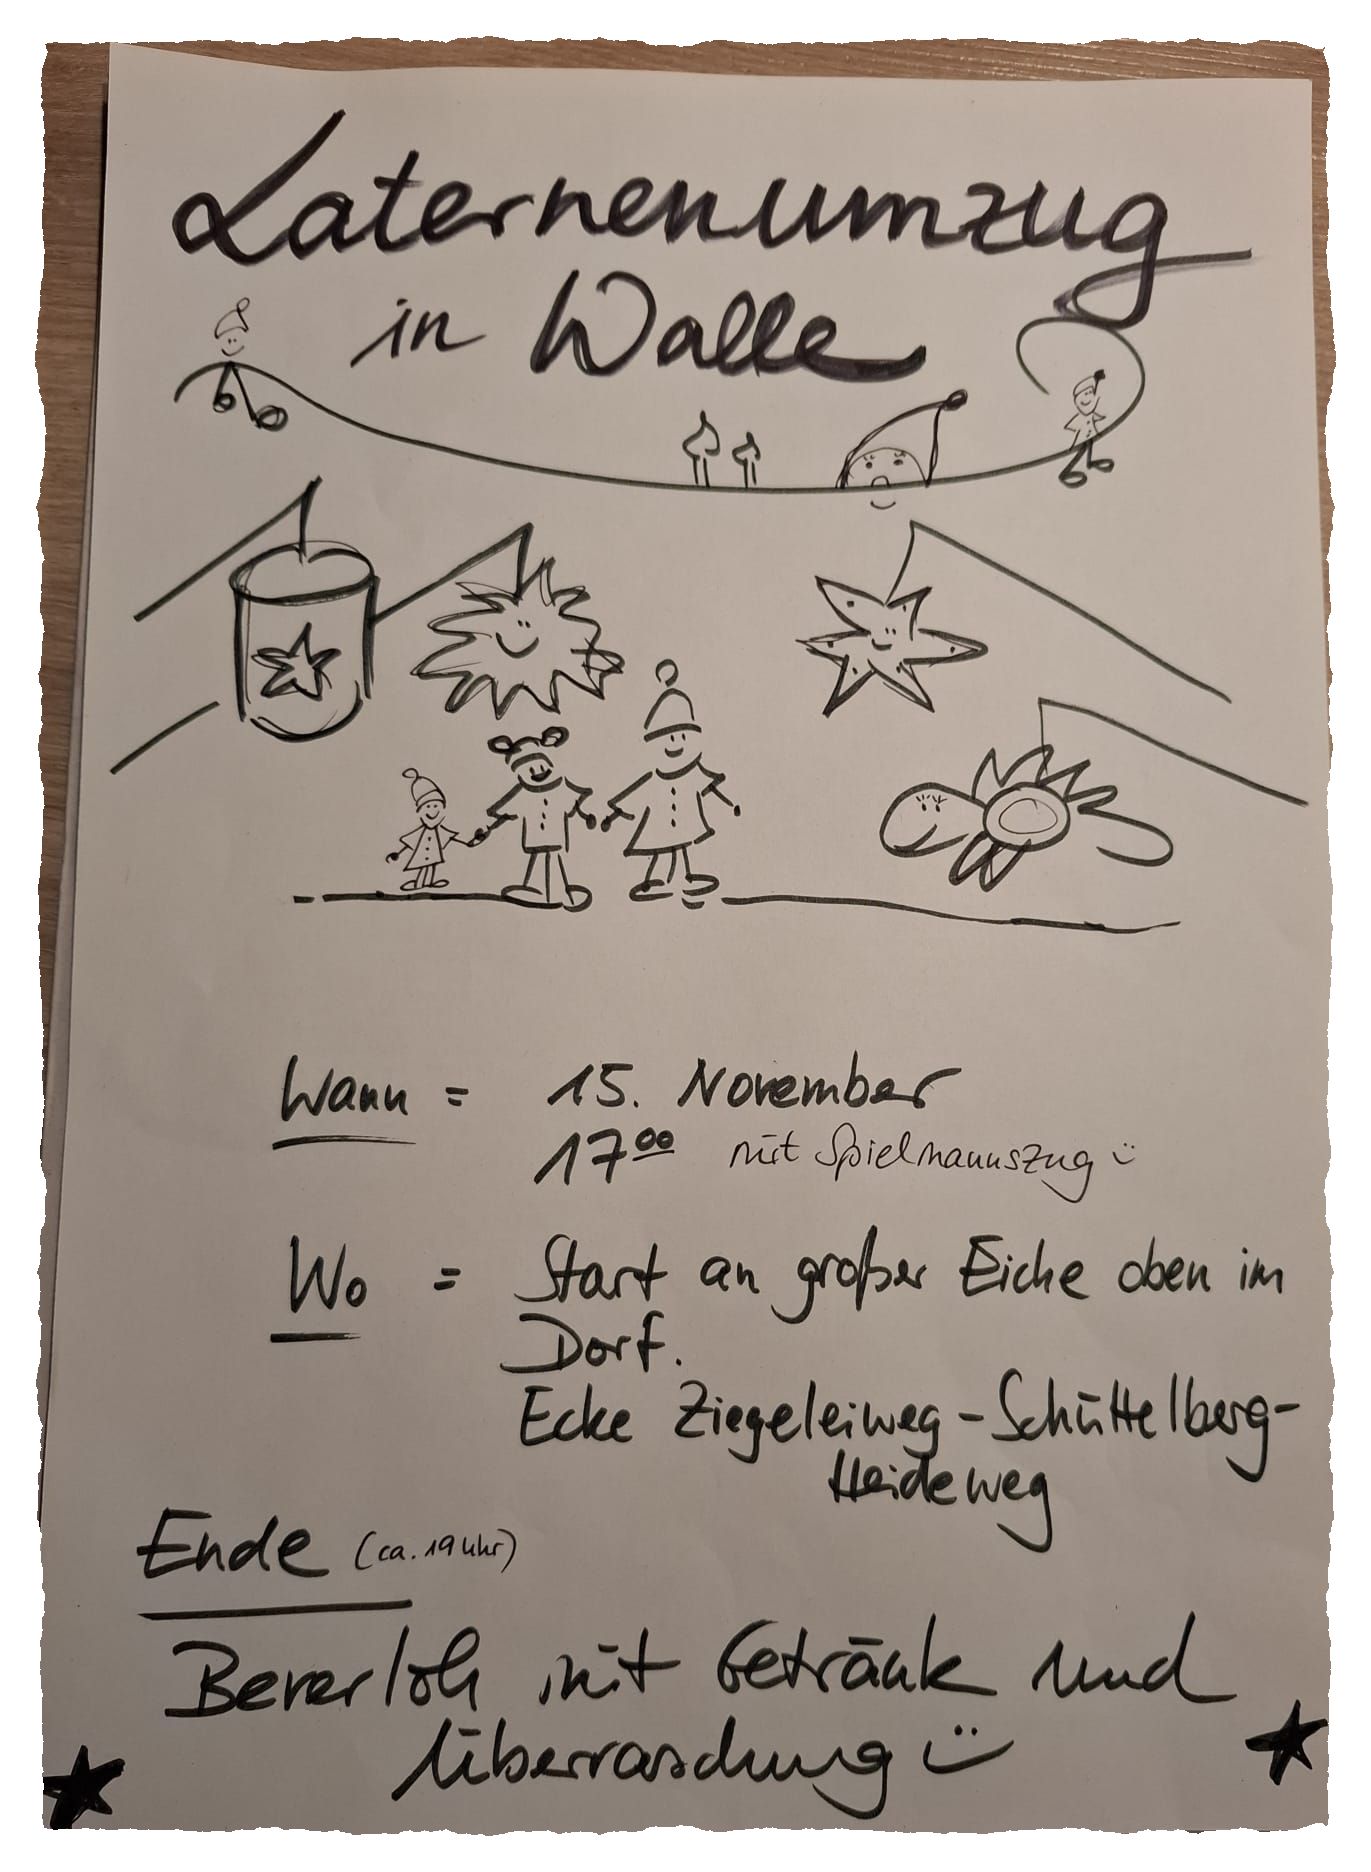 Laternenumzug
in Walle
Wann = 15. November
17⁰⁰ mit Spielmannszug
Wo = Start an großer Eiche oben im
Dorf.
Ecke Ziegeleiweg - Schüttelberg-
Heideweg
Ende (ca. 19 Uhr)
Beverloh mit Getränk und
Überraschung